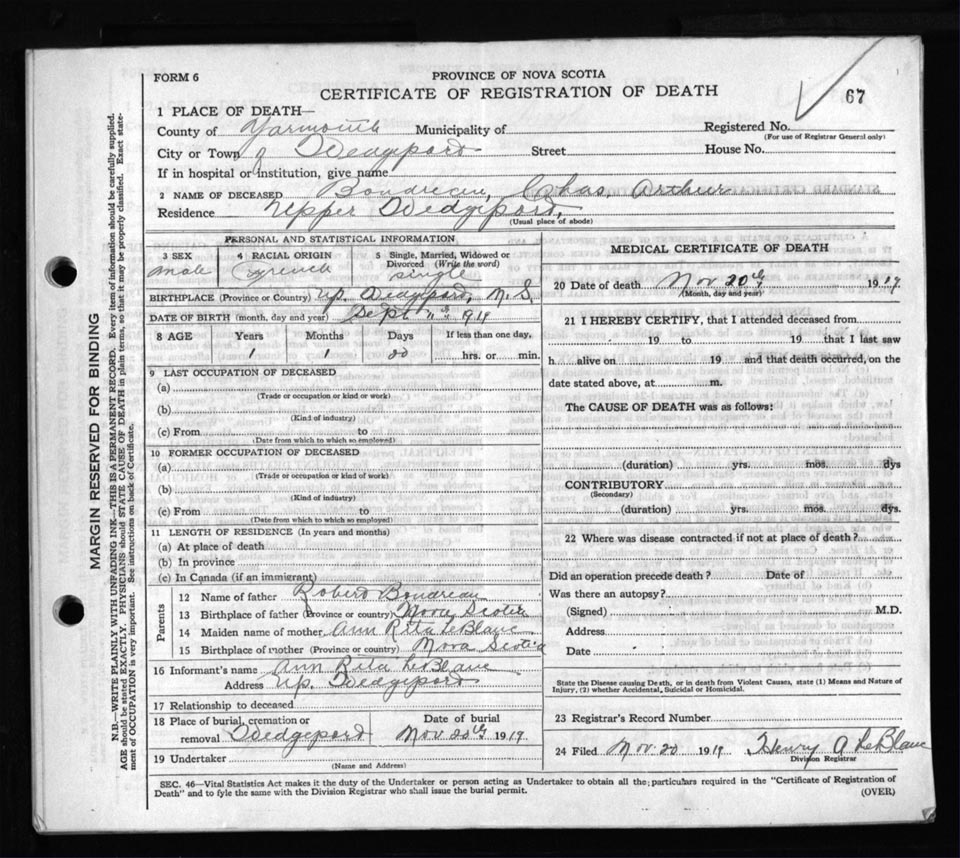 FORM 6
PROVINCE OF NOVA SCOTIA
CERTIFICATE OF REGISTRATION OF DEATH
67
1 PLACE OF DEATH—
County of Yarmouth Municipality of Registered No.
(For use of Registrar General only)
City or Town of Wedgeport Street House No.
If in hospital or institution, give name
2 NAME OF DECEASED Boudreau, Chas. Arthur
Residence Upper Wedgeport,
(Usual place of abode)
PERSONAL AND STATISTICAL INFORMATION
3 SEX 4 RACIAL ORIGIN 5 Single, Married, Widowed or Divorced (Write the word)
Male French Single
BIRTHPLACE (Province or Country) Up. Wedgeport, N.S.
DATE OF BIRTH (month, day and year) Sept
8 AGE Years Months Days If less than one day,
1 1 20 hrs. or min.
9 LAST OCCUPATION OF DECEASED
(a)
(Trade or occupation or kind or work)
(b)
(Kind of industry)
(c) From to
(Date from which to which so employed)
10 FORMER OCCUPATION OF DECEASED
(a)
(Trade or occupation or kind of work)
(b)
(Kind of industry)
(c) From to
(Date from which to which so employed)
11 LENGTH OF RESIDENCE (In years and months)
(a) At place of death
(b) In province
(c) In Canada (if an immigrant)
Parents
12 Name of father Robert Boudreau
13 Birthplace of father (Province or country) Nova Scotia
14 Maiden name of mother Ann Rita LeBlanc
15 Birthplace of mother (Province or country) Nova Scotia
16 Informant's name Ann Rita LeBlanc
Address Up. Wedgeport
17 Relationship to deceased
18 Place of burial, cremation or removal Wedgeport
Date of burial Nov. 20th 1919
19 Undertaker
(Name and Address)
MEDICAL CERTIFICATE OF DEATH
20 Date of death Nov 20th 1919
(Month, day and year)
21 I HEREBY CERTIFY, that I attended deceased from
19 to 19 that I last saw
h alive on 19 and that death occurred, on the
date stated above, at m.
The CAUSE OF DEATH was as follows:
(duration) yrs. mos. dys
CONTRIBUTORY
(Secondary)
(duration) yrs. mos. dys.
22 Where was disease contracted if not at place of death?
Did an operation precede death? Date of
Was there an autopsy?
(Signed) M.D.
Address
Date
State the Disease causing Death, or in death from Violent Causes, state (1) Means and Nature of
Injury, (2) whether Accidental, Suicidal or Homicidal.
23 Registrar's Record Number
24 Filed Nov 20 1919 Henry A LeBlanc
Division Registrar
SEC. 46—Vital Statistics Act makes it the duty of the Undertaker or person acting as Undertaker to obtain all the particulars required in the "Certificate of Registration of
Death" and to fyle the same with the Division Registrar who shall issue the burial permit.
(OVER)
MARGIN RESERVED FOR BINDING
N.B.—WRITE PLAINLY WITH UNFADING INK—THIS IS A PERMANENT RECORD. Every item of information should be carefully supplied.
AGE should be stated EXACTLY. PHYSICIANS should STATE CAUSE OF DEATH in plain terms, so that it may be properly classified. Exact state-
ment of OCCUPATION is very important. See instructions on back of Certificate.